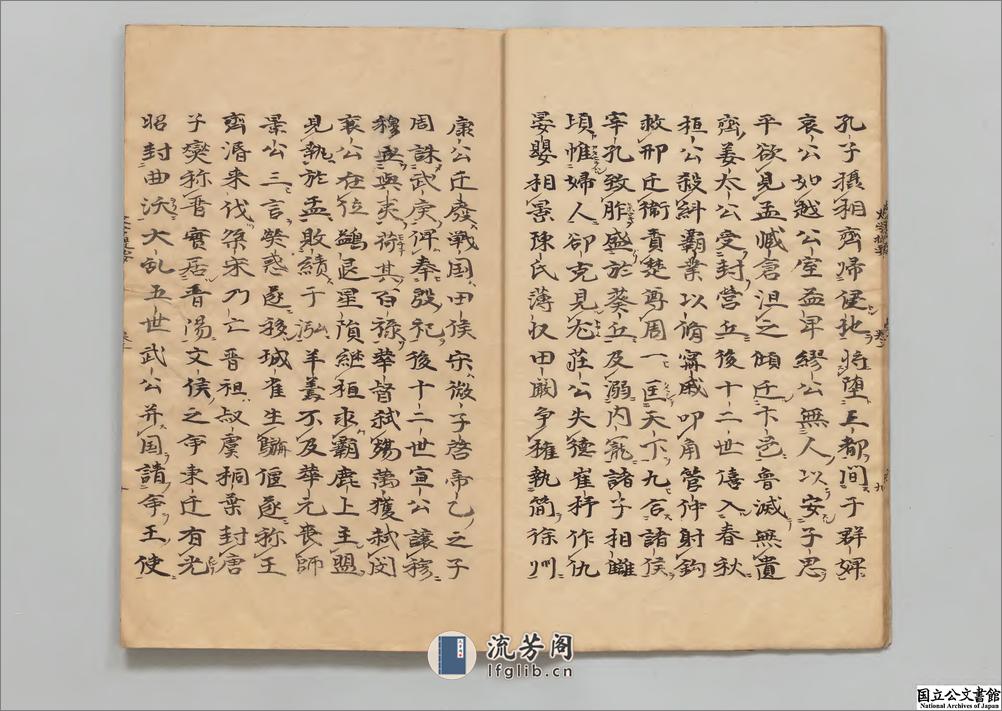 孔子摂相齊歸侵地將堕三都間子群婢
哀公如越公室益卑繆公無人以安子思
平欲見孟臧倉沮之傾迁卞邑魯滅無遺
齊姜太公受封營丘後十二世僖入春秋
桓公殺糾霸業以脩甯戚叩角管仲射鈎
救邢迁衞責楚尊周一匡天下九合諸侯
宰孔致胙盛於葵丘及溺内寵諸子相讎
頃帷婦人郤克見 莊公失徳崔杼作仇
晏嬰相景陳氏薄収田闞争権執簡徐州
康公迁廢戦国田侯宋微子啓帝乙之子
周誅武庚俾奉殷祀後十二世宣公讓穆
穆 與夷荷其百禄華督弑殤萬獲弑閔
襄公在位鷁退星隕継桓求霸鹿上主盟
見執於盂敗績于泓羊羹不及華元喪師
景公三言熒惑遂移城雀生 偃遂称王
齊湣来伐桀宋乃亡晋祖叔虞桐葉封唐
子爕称晋實居晋陽文侯之命東迁有光
昭封曲沃大乱五世武公并国請命王使
流芳阁
lfglib.cn
国立公文書館
National Archives of Japan